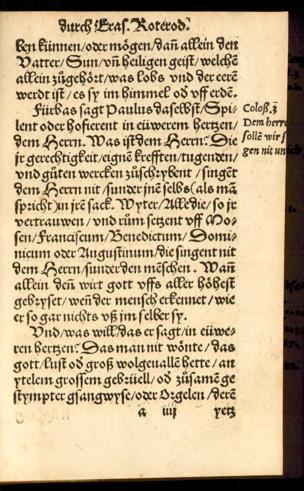 durch Eras. Roterod.
ben künnen/oder mögen/dañ allein den
Vatter/Sun/vñ heiligen geist/welchẽ
allein zůgehört/was lobs vnd der eerẽ
werdt ist/es sy im himmel oď vff erdẽ.
Fürbas sagt Paulus daselbst/Spi-
lent oder hofierent in eüwerem hertzen/
dem Herrn. Was ist dem Herrn? Die
jr gerechtigkeit/eignẽ krefften/tugenden/
vnd gůten wercken zůschrybent/singẽt
dem Herrn nit/sunder jnẽ selbs (als mã
spricht) in jrẽ sack. Wyter/Alle die/so jr
vertrauwen/vnd rům setzent vff Mo-
sen/Franciscum/Benedictum/Domi-
nicum oder Augustinum/die singent nit
dem Herrn/sunder den mẽschen. Wañ
allein deñ wirt gott vffs aller höhest
gebryset/weñ der mensch erkennet/wie
er so gar nichts vß jm selber sy.
Vnd/was will/das er sagt/in eüwe-
ren hertzen? Das man nit wönte/das
gott/lust oď groß wolgeuallẽ hette/an
ytelem grossem gebrüell/oď zůsamẽ ge
stympter gsangwyse/oder Orgelen/derẽ
a iiij yetz
Coloß. 3
Dem herrn
sollẽ wir s
gen nit